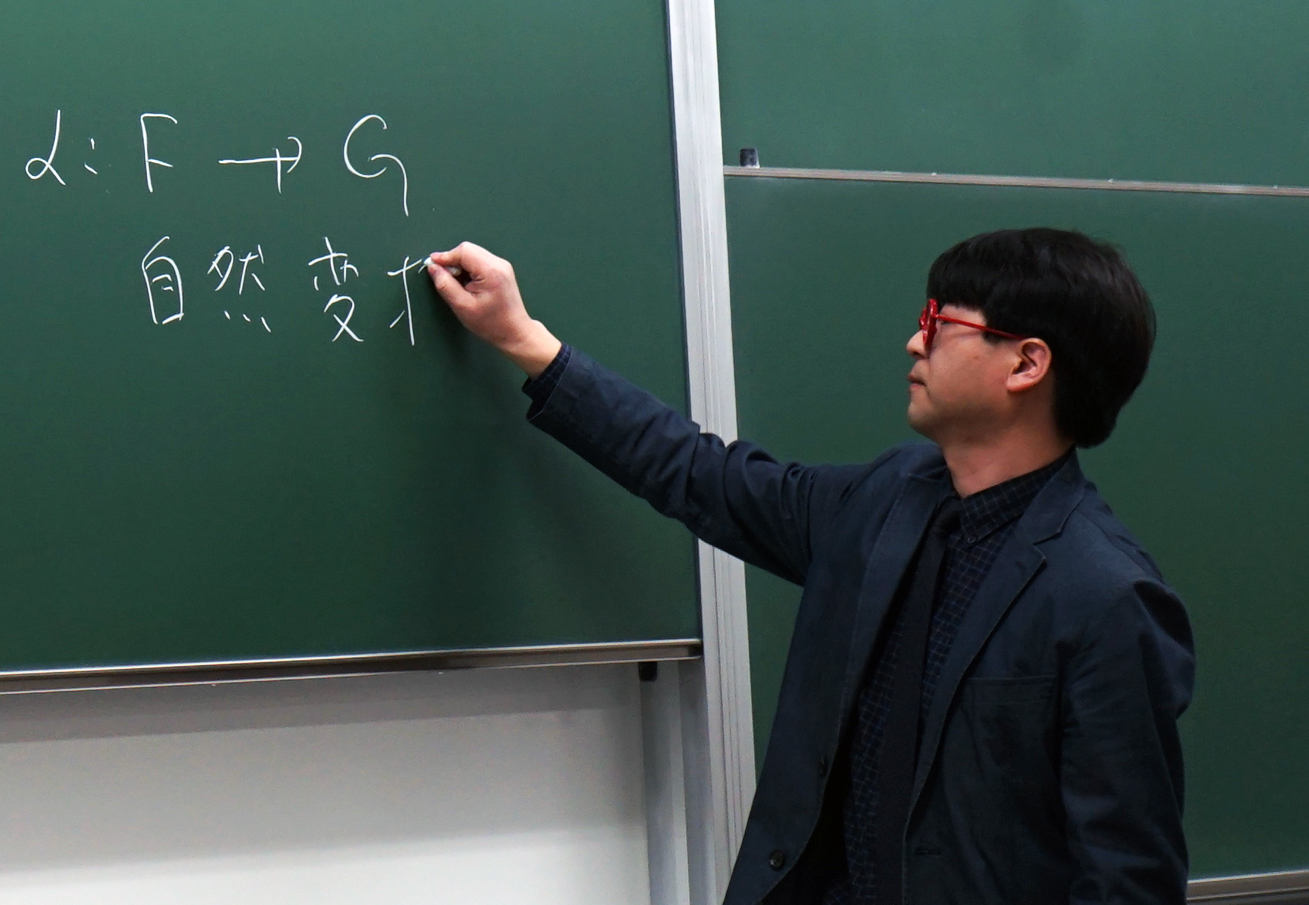 α: F → G
自然変